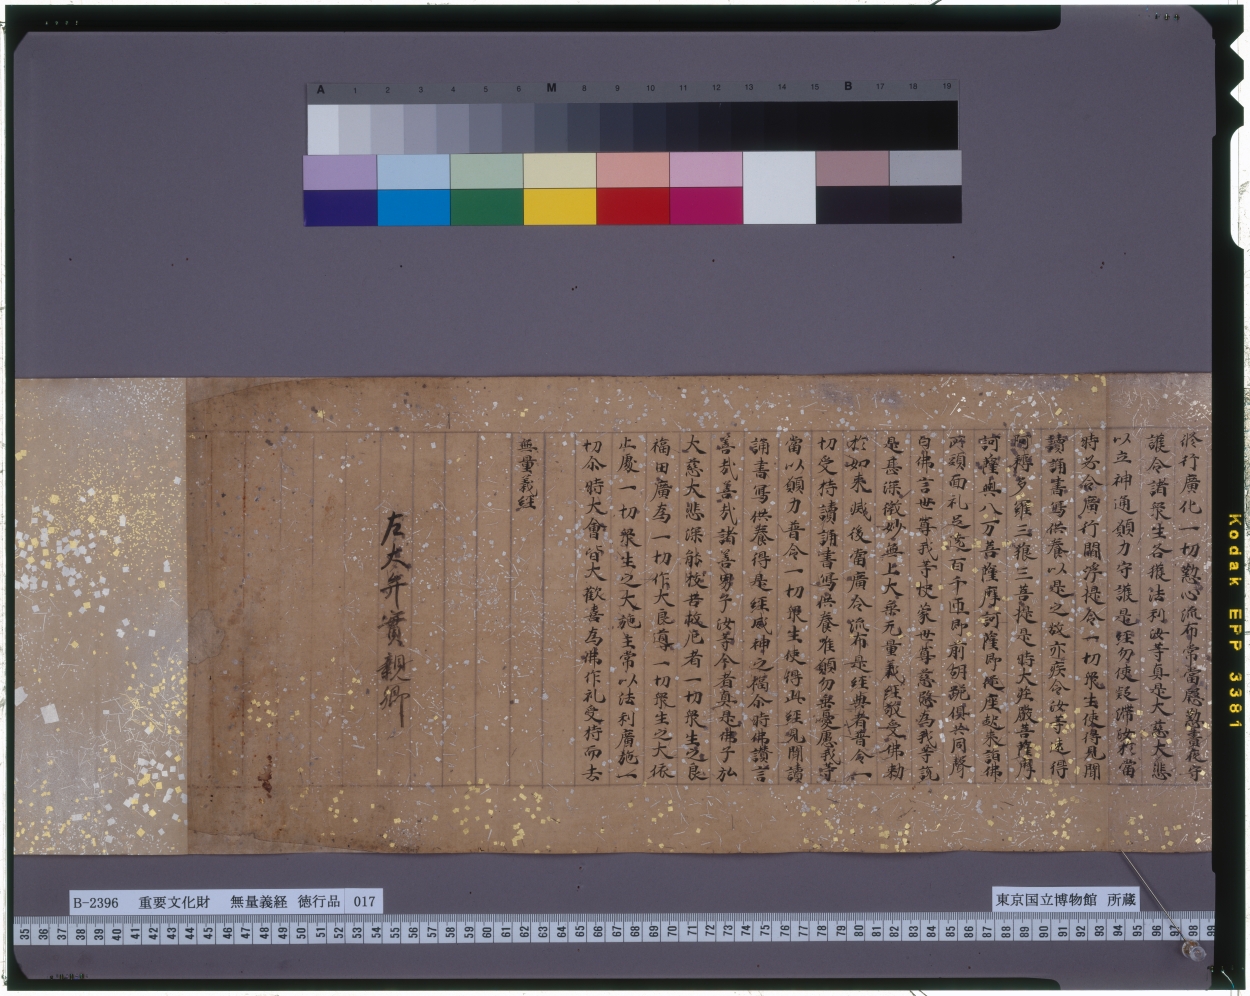 A 1 2 3 4 5 6 M 8 9 10 11 12 13 14 15 B 17 18 19
修行廣化一切懃心流布常當慇懃晝夜守
護令諸衆生各獲法利汝等真是大慈大悲
以立神通願力守護是經勿使疑滯汝於當
時必令廣行閻浮提令一切衆生使得見聞
讀誦書寫供養以是之故亦疾令汝等速得
阿耨多羅三藐三菩提是時大莊嚴菩薩摩
訶薩與八万菩薩摩訶薩即從座起來詣佛
所頭面礼足遶百千匝即前胡跪俱共同聲
白佛言世尊我等快蒙世尊慈愍為我等說
是甚深微妙無上大乘无量義經敬受佛勅
於如來滅後當廣令流布是經典者普令一
切受持讀誦書寫供養唯願勿垂憂慮我等
當以願力普令一切衆生使得此經見聞讀
誦書寫供養得是經威神之福尒時佛讚言
善哉善哉諸善男子汝等今者真是佛子弘
大慈大悲深能拔苦救厄者一切衆生之良
福田廣為一切作大良導一切衆生之大依
止處一切衆生之大施主常以法利廣施一
切尒時大會皆大歡喜為佛作礼受持而去
無量義經
左大弁實親卿
Kodak EPP 3381
B-2396 重要文化財 無量義経 徳行品 017
東京国立博物館 所蔵
35 36 37 38 39 40 41 42 43 44 45 46 47 48 49 50 51 52 53 54 55 56 57 58 59 60 61 62 63 64 65 66 67 68 69 70 71 72 73 74 75 76 77 78 79 80 81 82 83 84 85 86 87 88 89 90 91 92 93 94 95 96 97 98 99